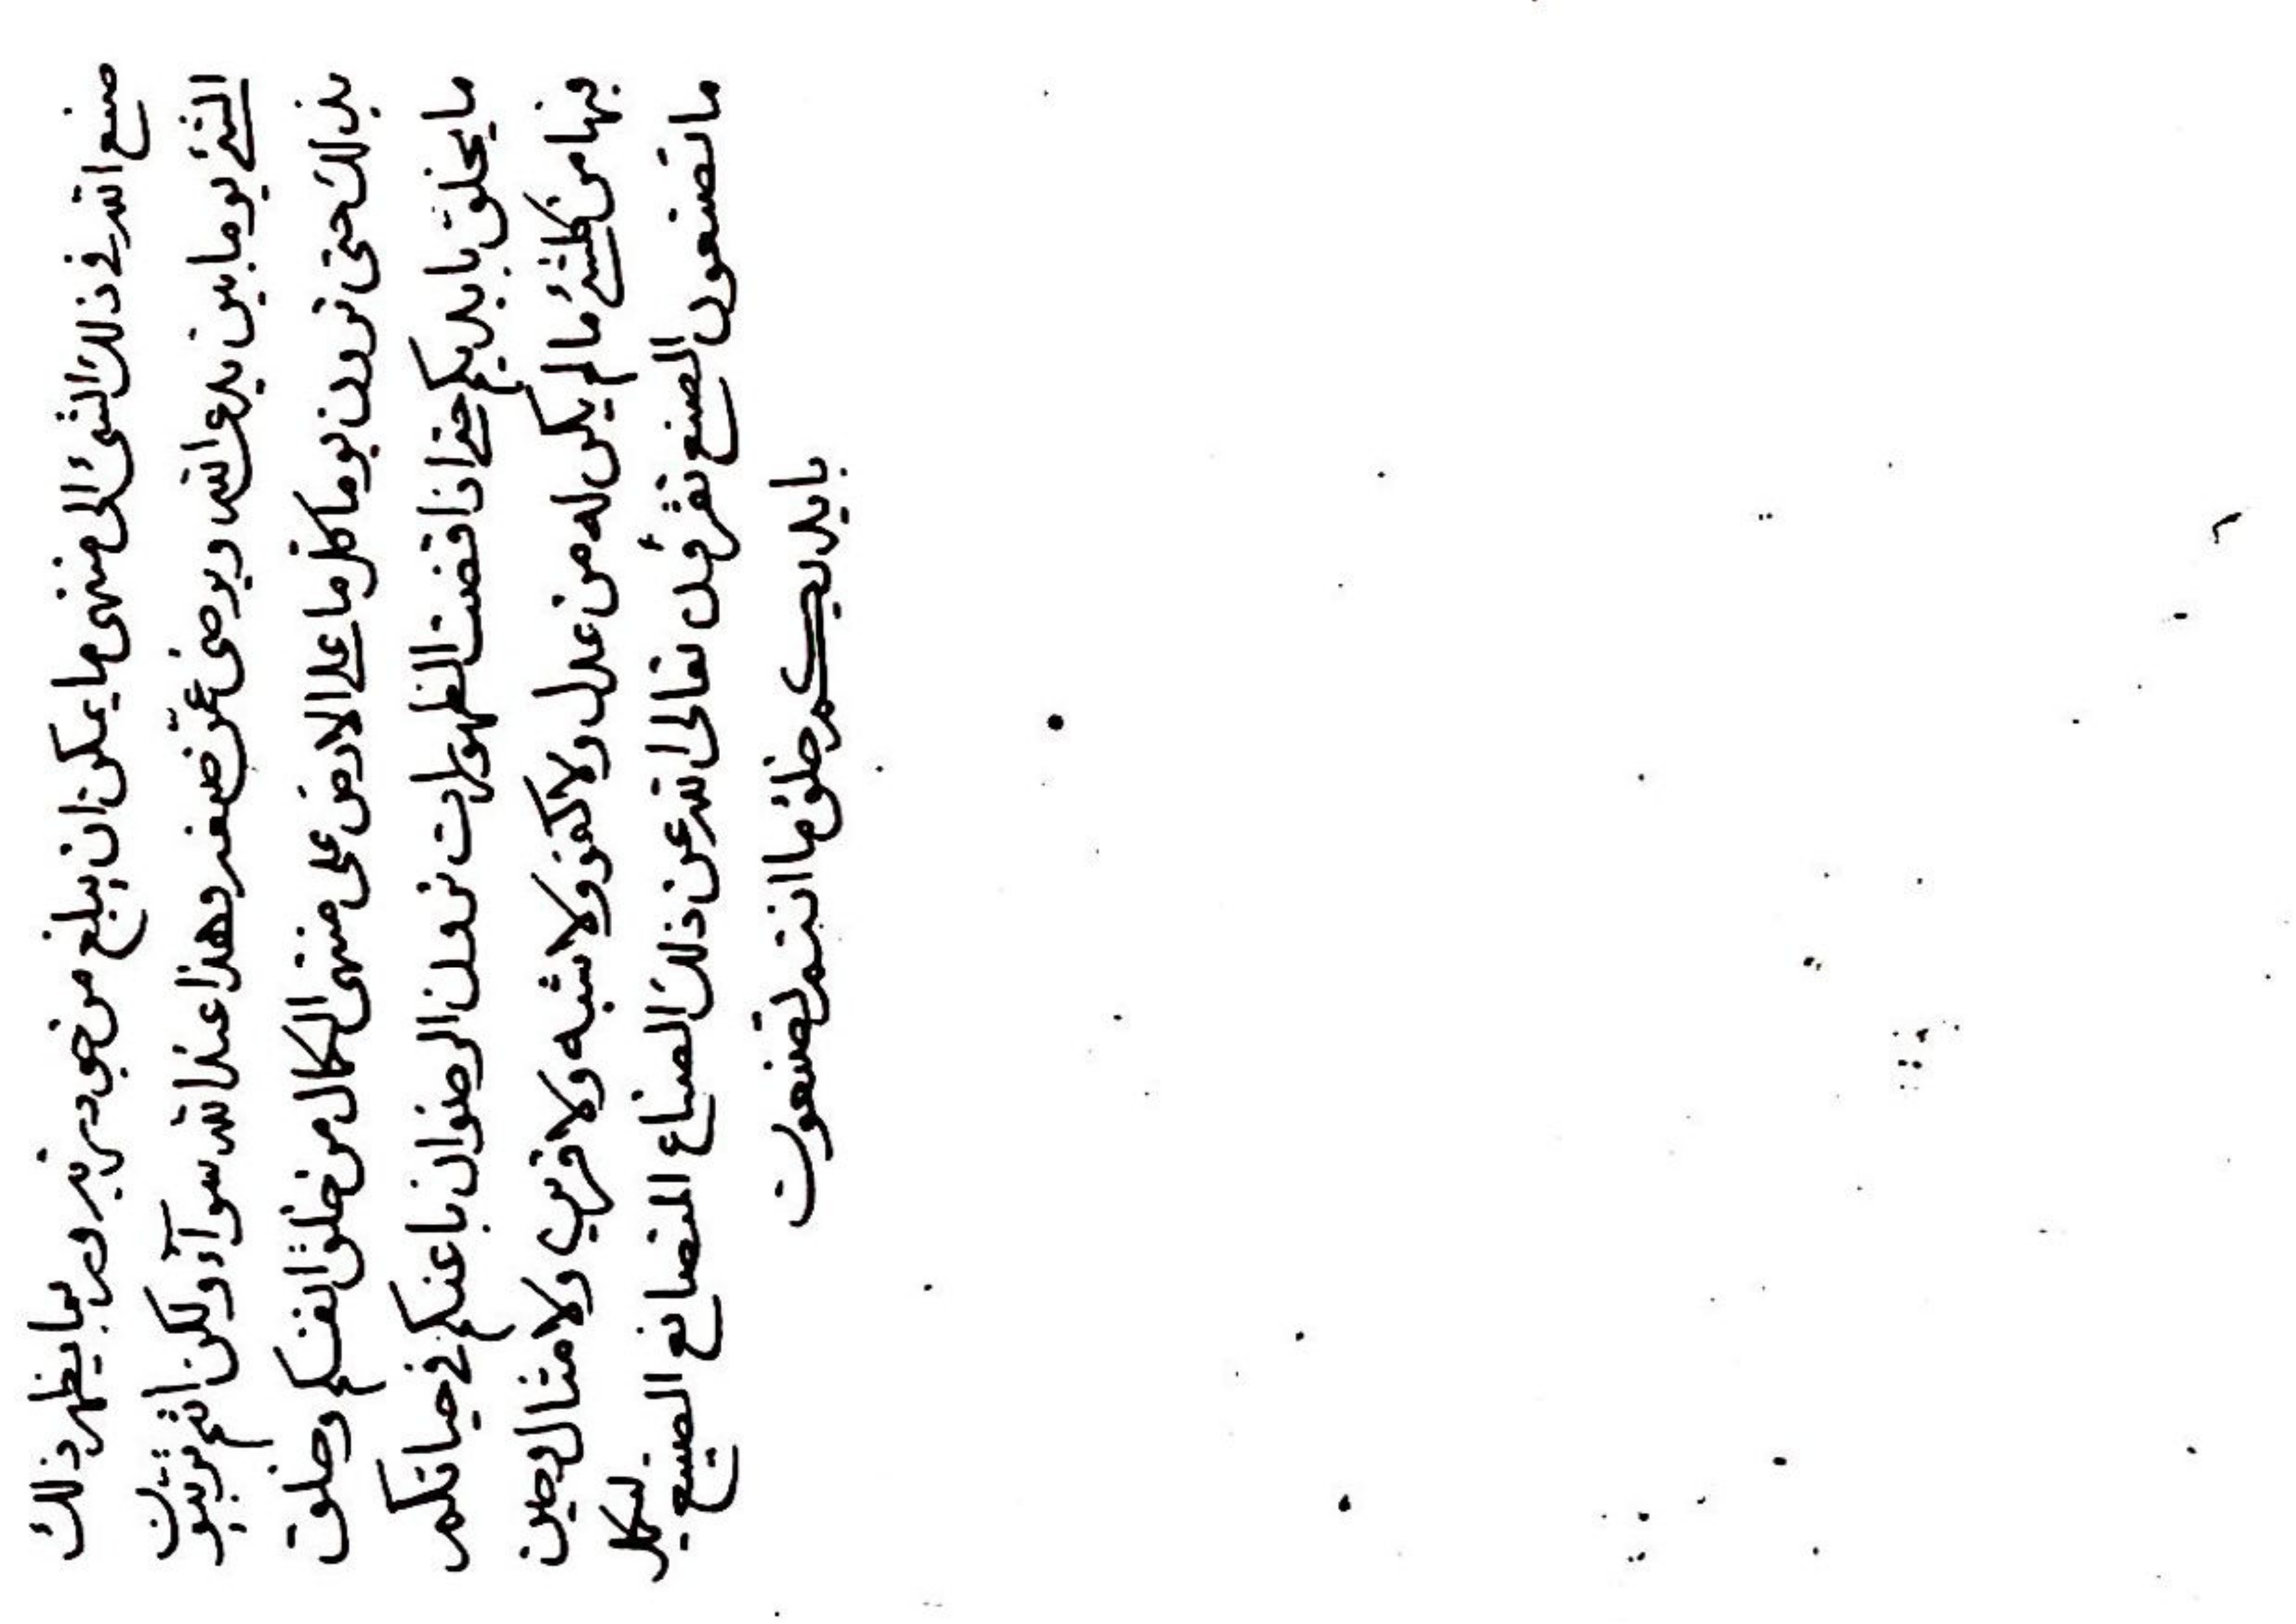 صنع الله في ذلك الشئ الى منتهى ما يمكن ان يبلغ من جوهريته وبما يظهر ذلك
الشئ يوما بين يدي الله ويرضى عن صنعه وهذا عند الله سوآء ولكن انتم تربيون
بذلك حتى تردن يوما كل ما على الارض على منتهى الكمال من خلق انفسكم وخلق
ما يخلق بايديكم حتى اذا قضت الظهورات تردن الرضوان باعينكم في حياتكم
فيها من كلشئ ما لم يكن له من عدل ولا كفو ولا شبه ولا قرين ولا مثال وحين
ما تصنعون الصنع تقرئن تعالى الله عن ذلك الصناع المتصانع الصنيع لكل
بايديكم خلق ما انتم تصنعون